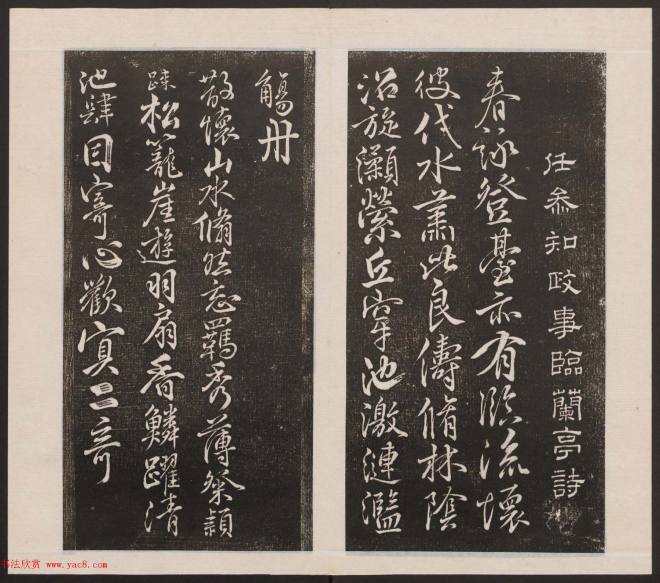 任叅知政事臨蘭亭詩
春詠登臺亦有臨流懷
彼伐木肅此良儔脩林陰
沼旋瀨縈丘穿池激漣濫
觴舟
散懷山水脩然忘羈秀薄粲穎
疎松籠崖遊羽扇香鱗躍清
池肆目寄心歡冥二奇
书法欣赏 www.yac8.com